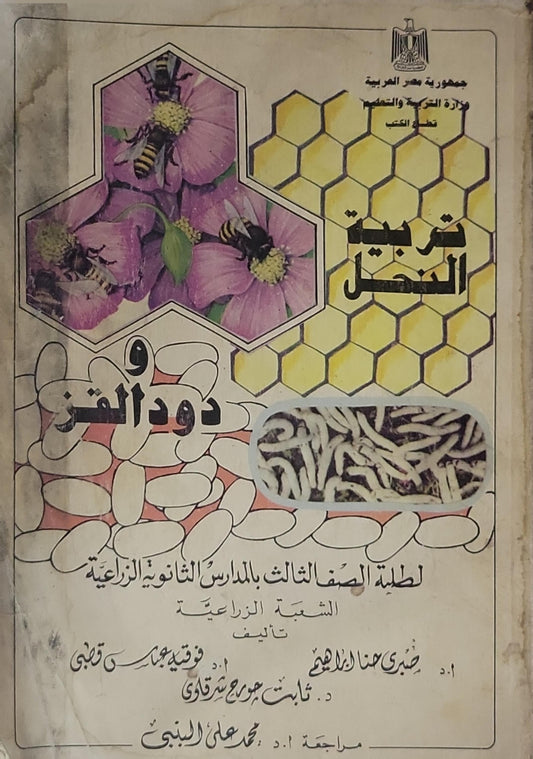 جمهورية مصر العربية
وزارة التربية والتعليم
قطاع الكتب
تربية
النحل
و
دود القز
لطلبة الصف الثالث بالمدارس الثانوية الزراعية
الشعبة الزراعية
تأليف
ا.د صبرى حنا ابراهيم ا.د فوقيه عباس قطبى
د. ثابت جورج شرقاوى
مراجعة ا.د. محمد على البنبى